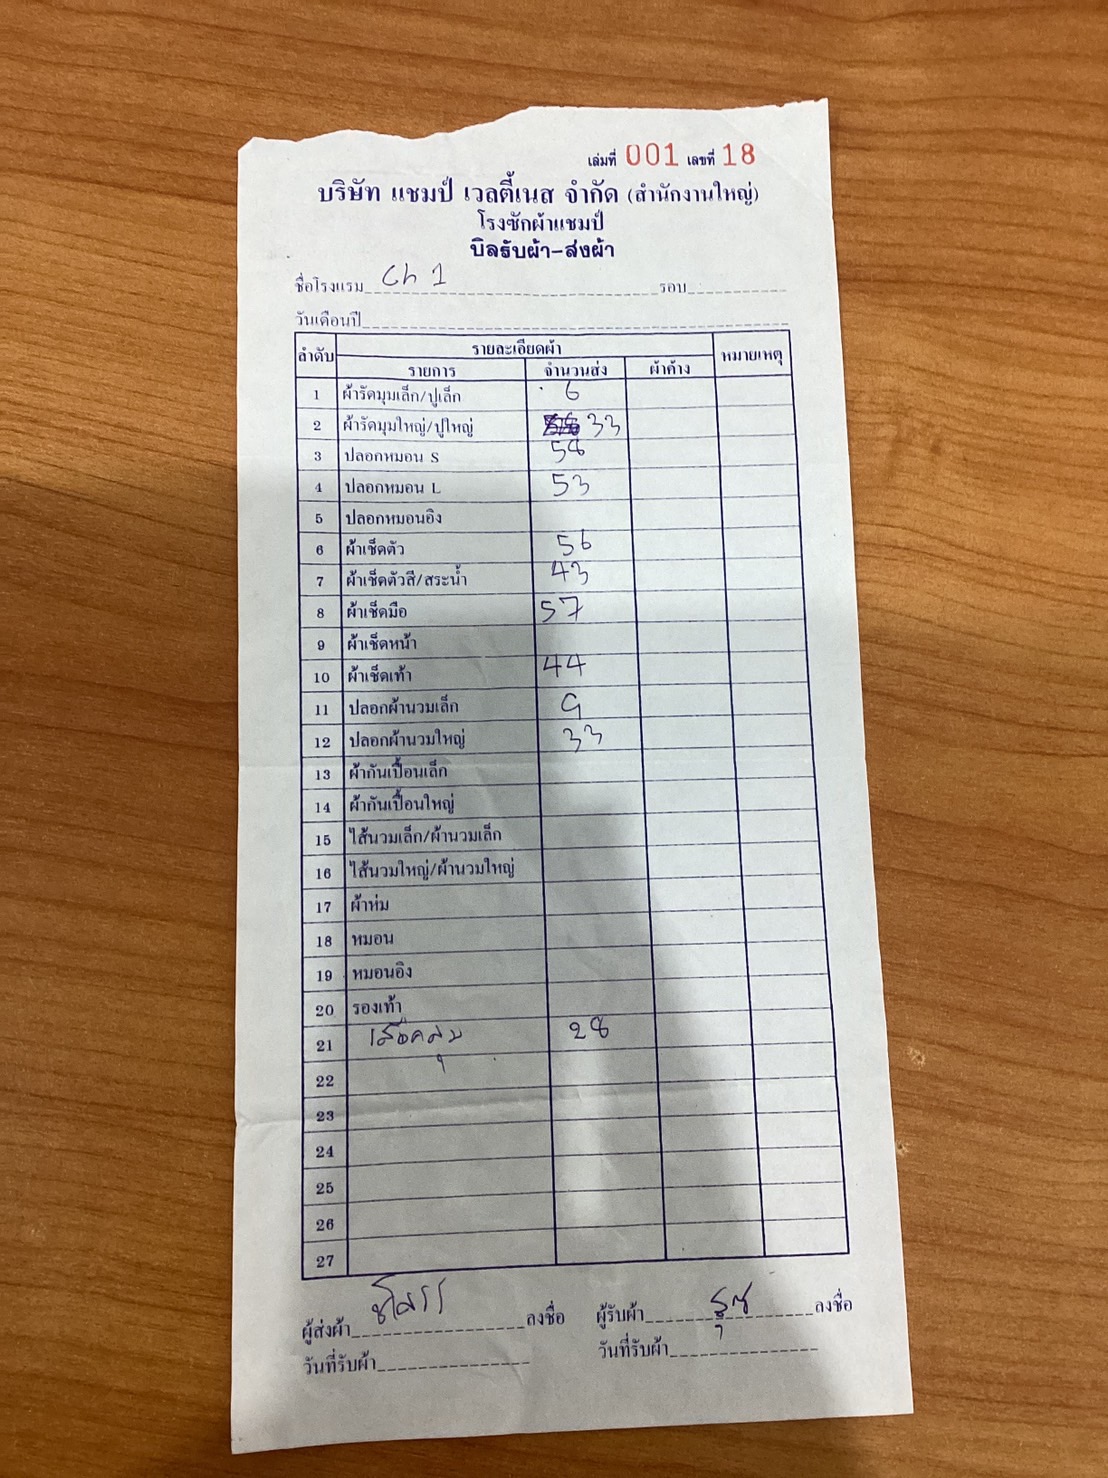 เล่มที่ 001 เลขที่ 18
บริษัท แชมป์ เวลตี้เนส จำกัด (สำนักงานใหญ่)
โรงซักผ้าแชมป์
บิลรับผ้า-ส่งผ้า
ชื่อโรงแรม Ch 1 รอบ
วันเดือนปี
ลำดับ รายละเอียดผ้า หมายเหตุ
รายการ จำนวนส่ง ผ้าค้าง
1 ผ้ารัดมุมเล็ก/ปูเล็ก 6
2 ผ้ารัดมุมใหญ่/ปูใหญ่ 33
3 ปลอกหมอน S 58
4 ปลอกหมอน L 53
5 ปลอกหมอนอิง
6 ผ้าเช็ดตัว 56
7 ผ้าเช็ดตัวสี/สระน้ำ 43
8 ผ้าเช็ดมือ 57
9 ผ้าเช็ดหน้า
10 ผ้าเช็ดเท้า 44
11 ปลอกผ้านวมเล็ก 9
12 ปลอกผ้านวมใหญ่ 33
13 ผ้ากันเปื้อนเล็ก
14 ผ้ากันเปื้อนใหญ่
15 ไส้นวมเล็ก/ผ้านวมเล็ก
16 ไส้นวมใหญ่/ผ้านวมใหญ่
17 ผ้าห่ม
18 หมอน
19 หมอนอิง
20 รองเท้า
21 เสื้อคลุม 28
22
23
24
25
26
27
ผู้ส่งผ้า ลงชื่อ ผู้รับผ้า ลงชื่อ
วันที่รับผ้า วันที่รับผ้า